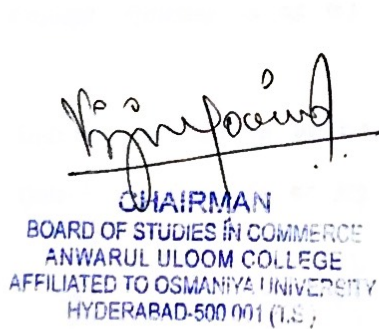 CHAIRMAN
BOARD OF STUDIES IN COMMERCE
ANWARUL ULOOM COLLEGE
AFFILIATED TO OSMANIYA UNIVERSITY
HYDERABAD-500 001 (T.S.)